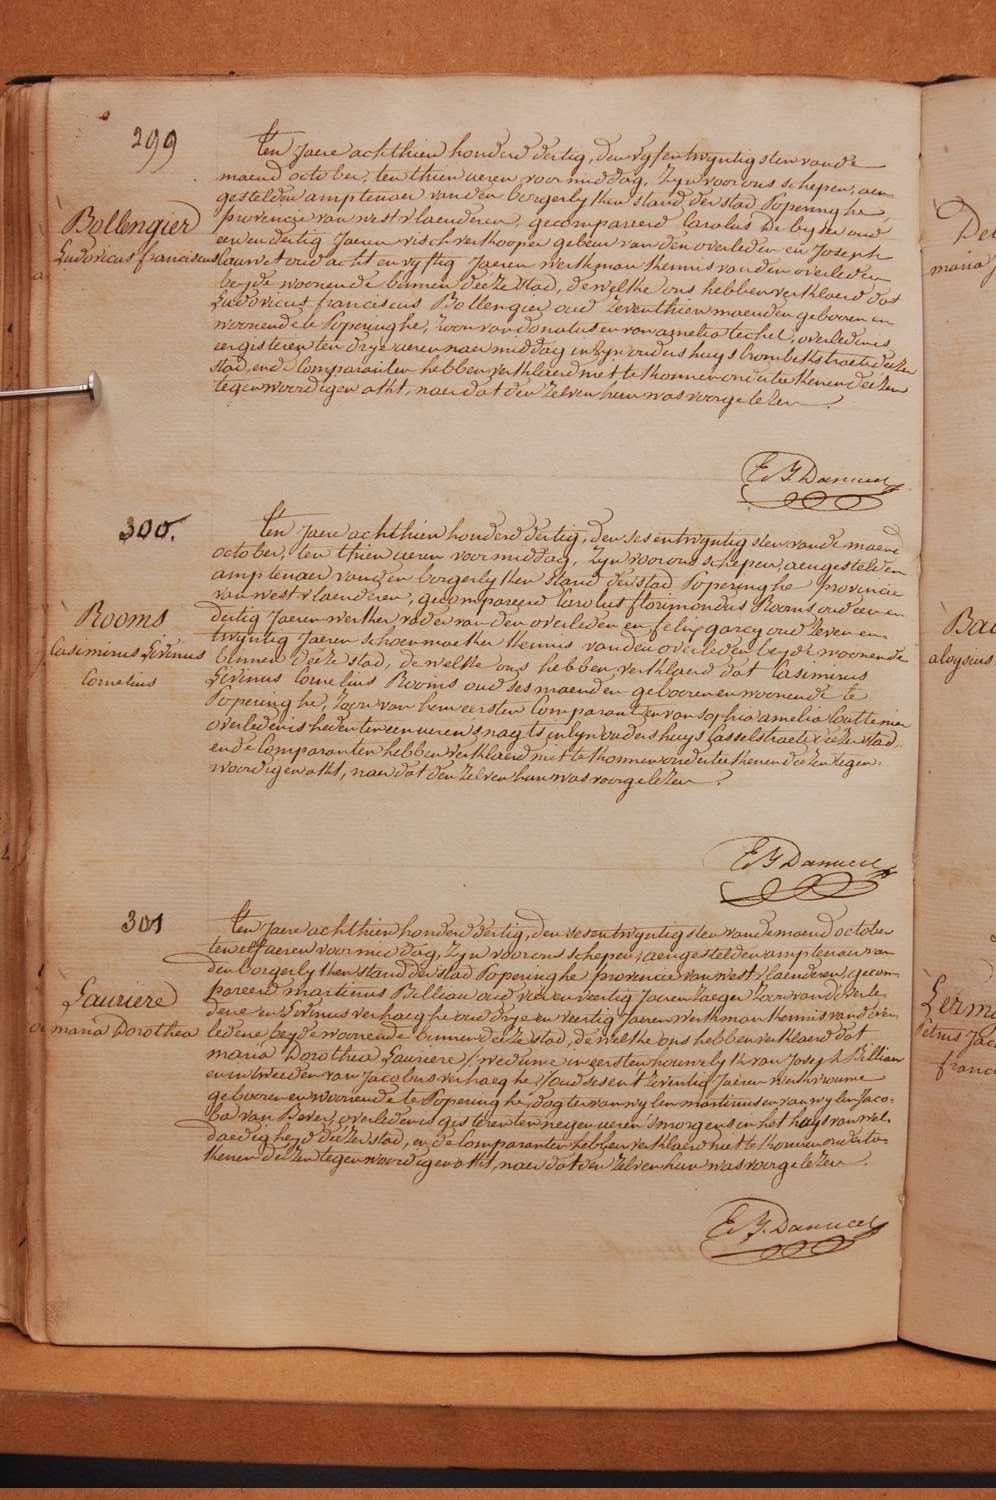 299
Bollengier
Ludovicus franciscus
Ten Jaere achthien honderd dertig, den vyfentwyntigsten van de
maend october, ten thien ueren voormiddag, Zyn voor ons schepen, aen-
gestelden amptenaer van den borgerlyken stand der stad Poperinghe,
provencie van west vlaenderen, gecompareerd Carolus De byser oud
een en dertig Jaeren vischverkooper gebeur van den overleden en Joseph
Cauwet oud acht en vyftig Jaeren werkman kennis van den overleden
beyde woonende binnen deeze stad, dewelke ons hebben verklaerd dat
Ludovicus franciscus Bollengier oud Zeventhien maenden gebooren en
woonende te Poperinghe, Zoon van donatus en van amelia techel, overleden is
eergisteren ten drye ueren naermiddag in Zyn ouders huys Crombekstraete deezer
stad, en de Comparanten hebben verklaerd niet te konnen onderteekenen deezen
tegenwoordigen akt, naer dat den Zelven hun was voorgelezen.
E. Y. Danneel
300.
Rooms
Casimirus Livinus
Cornelius
Ten Jaere achthien honderd dertig, den sesentwyntigsten van de maend
october, ten thien ueren voormiddag, Zyn voor ons schepen, aengestelden
amptenaer van den borgerlyken stand der stad Poperinghe provincie
van west vlaenderen, gecompareerd Carolus florimondus Rooms oud een en
dertig Jaeren werker, vader van den overleden en felix garcy oud Zeven en
twyntig Jaeren schoenmaeker kennis van den overleden beyde woonende
binnen deeze stad, de welke ons hebben verklaerd dat Casimirus
Livinus Cornelius Rooms oud ses maenden gebooren en woonende te
Poperinghe, Zoon van hem eersten Comparant en van sophia amelia Couttenier
overleden is heden ten een ueren s'nagts in Zyn ouders huys Casselstraete deezer stad
en de Comparanten hebben verklaerd niet te konnen onderteekenen deezen tegen-
woordigen akt, naer dat den Zelven hun was voorgelezen.
E Y Danneel
301
Lauriere
maria Dorothea
Ten Jaere achthien honderd dertig, den sesentwyntigsten van de maend october
ten elf ueren voormiddag, Zyn voor ons schepen, aengestelden amptenaer van
den borgerlyken stand der stad Poperinghe provencie van west vlaenderen, gecom-
pareerd martinus Billiau oud vier en veertig Jaeren Zaeger Zoon van d'overle-
dene en Livinus verhaeghe oud drye en veertig Jaeren werkman kennis van d'over-
ledene, beyde woonende binnen deeze stad, de welke ons hebben verklaerd dat
maria Dorothea Lauriere, weduwe in eersten houwelyk van Joseph Billiau
en in tweeden van Jacobus verhaeghe, oud sesentzeventig Jaeren werkvrouwe
gebooren en woonende te Poperinghe, dogter van wylen martinus en van wylen Jaco-
ba van Bever, overleden is gisteren ten negen ueren s'morgens in het huys van wel-
daedigheyd deezer stad, en de Comparanten hebben verklaerd niet te konnen ondertee-
kenen deezen tegenwoordigen akt, naer dat den Zelven hun was voorgelezen.
E. Y. Danneel
maria
aloysius